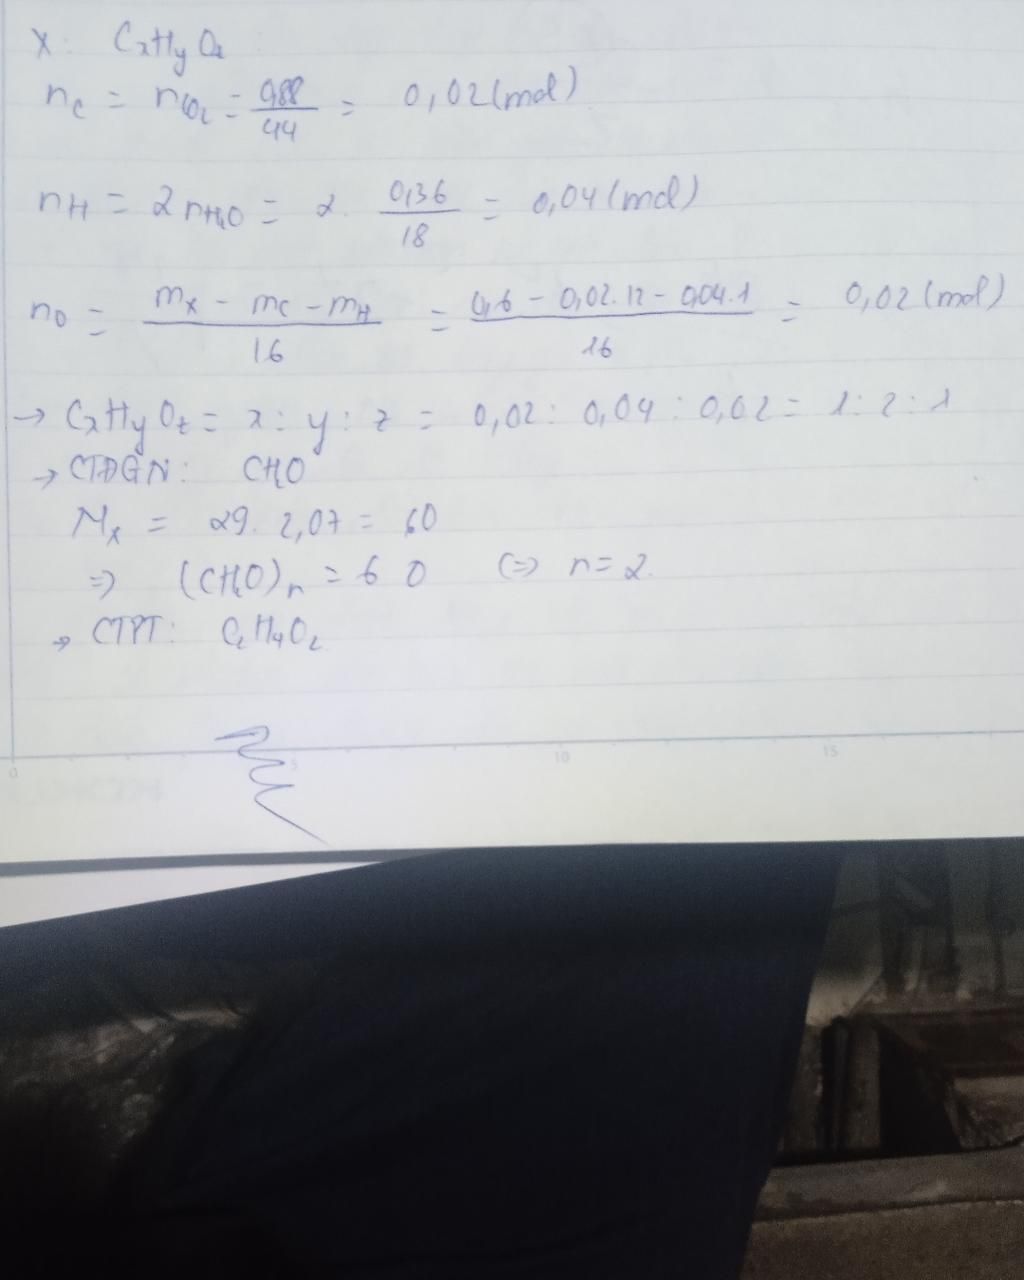 X: CxHyOz
nC = nCO2 = 0,88/44 = 0,02 (mol)
nH = 2nH2O = 2. 0,36/18 = 0,04 (mol)
nO = mX - mC - mH/16 = 0,6 - 0,02.12 - 0,04.1/16 = 0,02 (mol)
→ CxHyOz = x : y : z = 0,02 : 0,04 : 0,02 = 1 : 2 : 1
→ CTĐGN: CH2O
MX = 29. 2,07 = 60
=> (CH2O)n = 60 <=> n = 2.
→ CTPT: C2H4O2
0 5 10 15